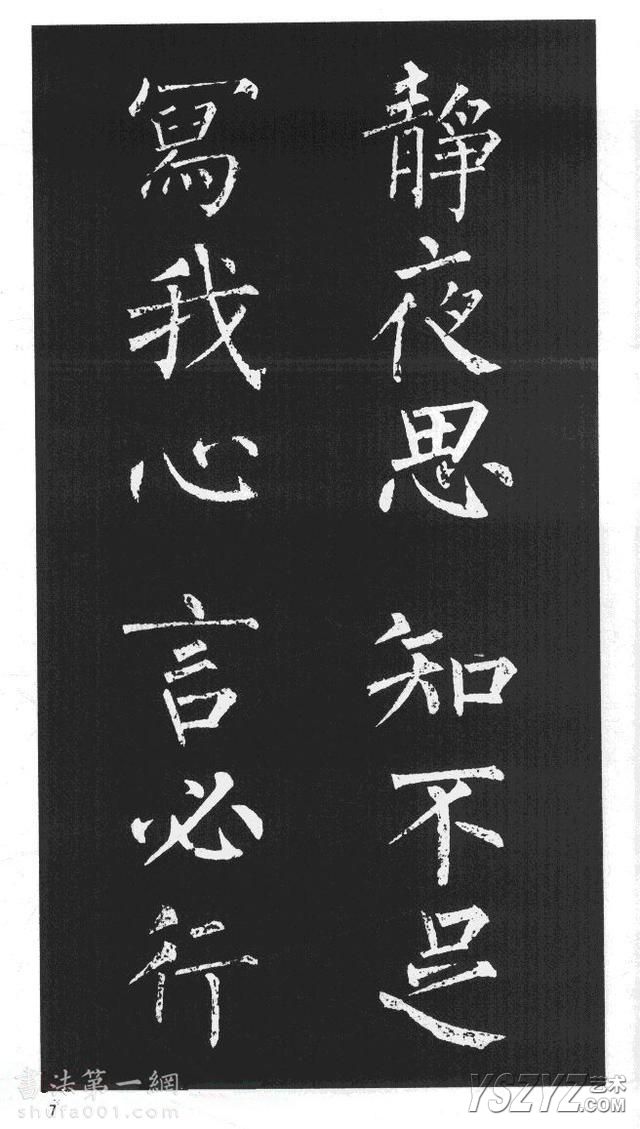 靜夜思 知不足
寫我心 言必行
7
書法第一網
shufa001.com
YSZYZ艺术
.COM